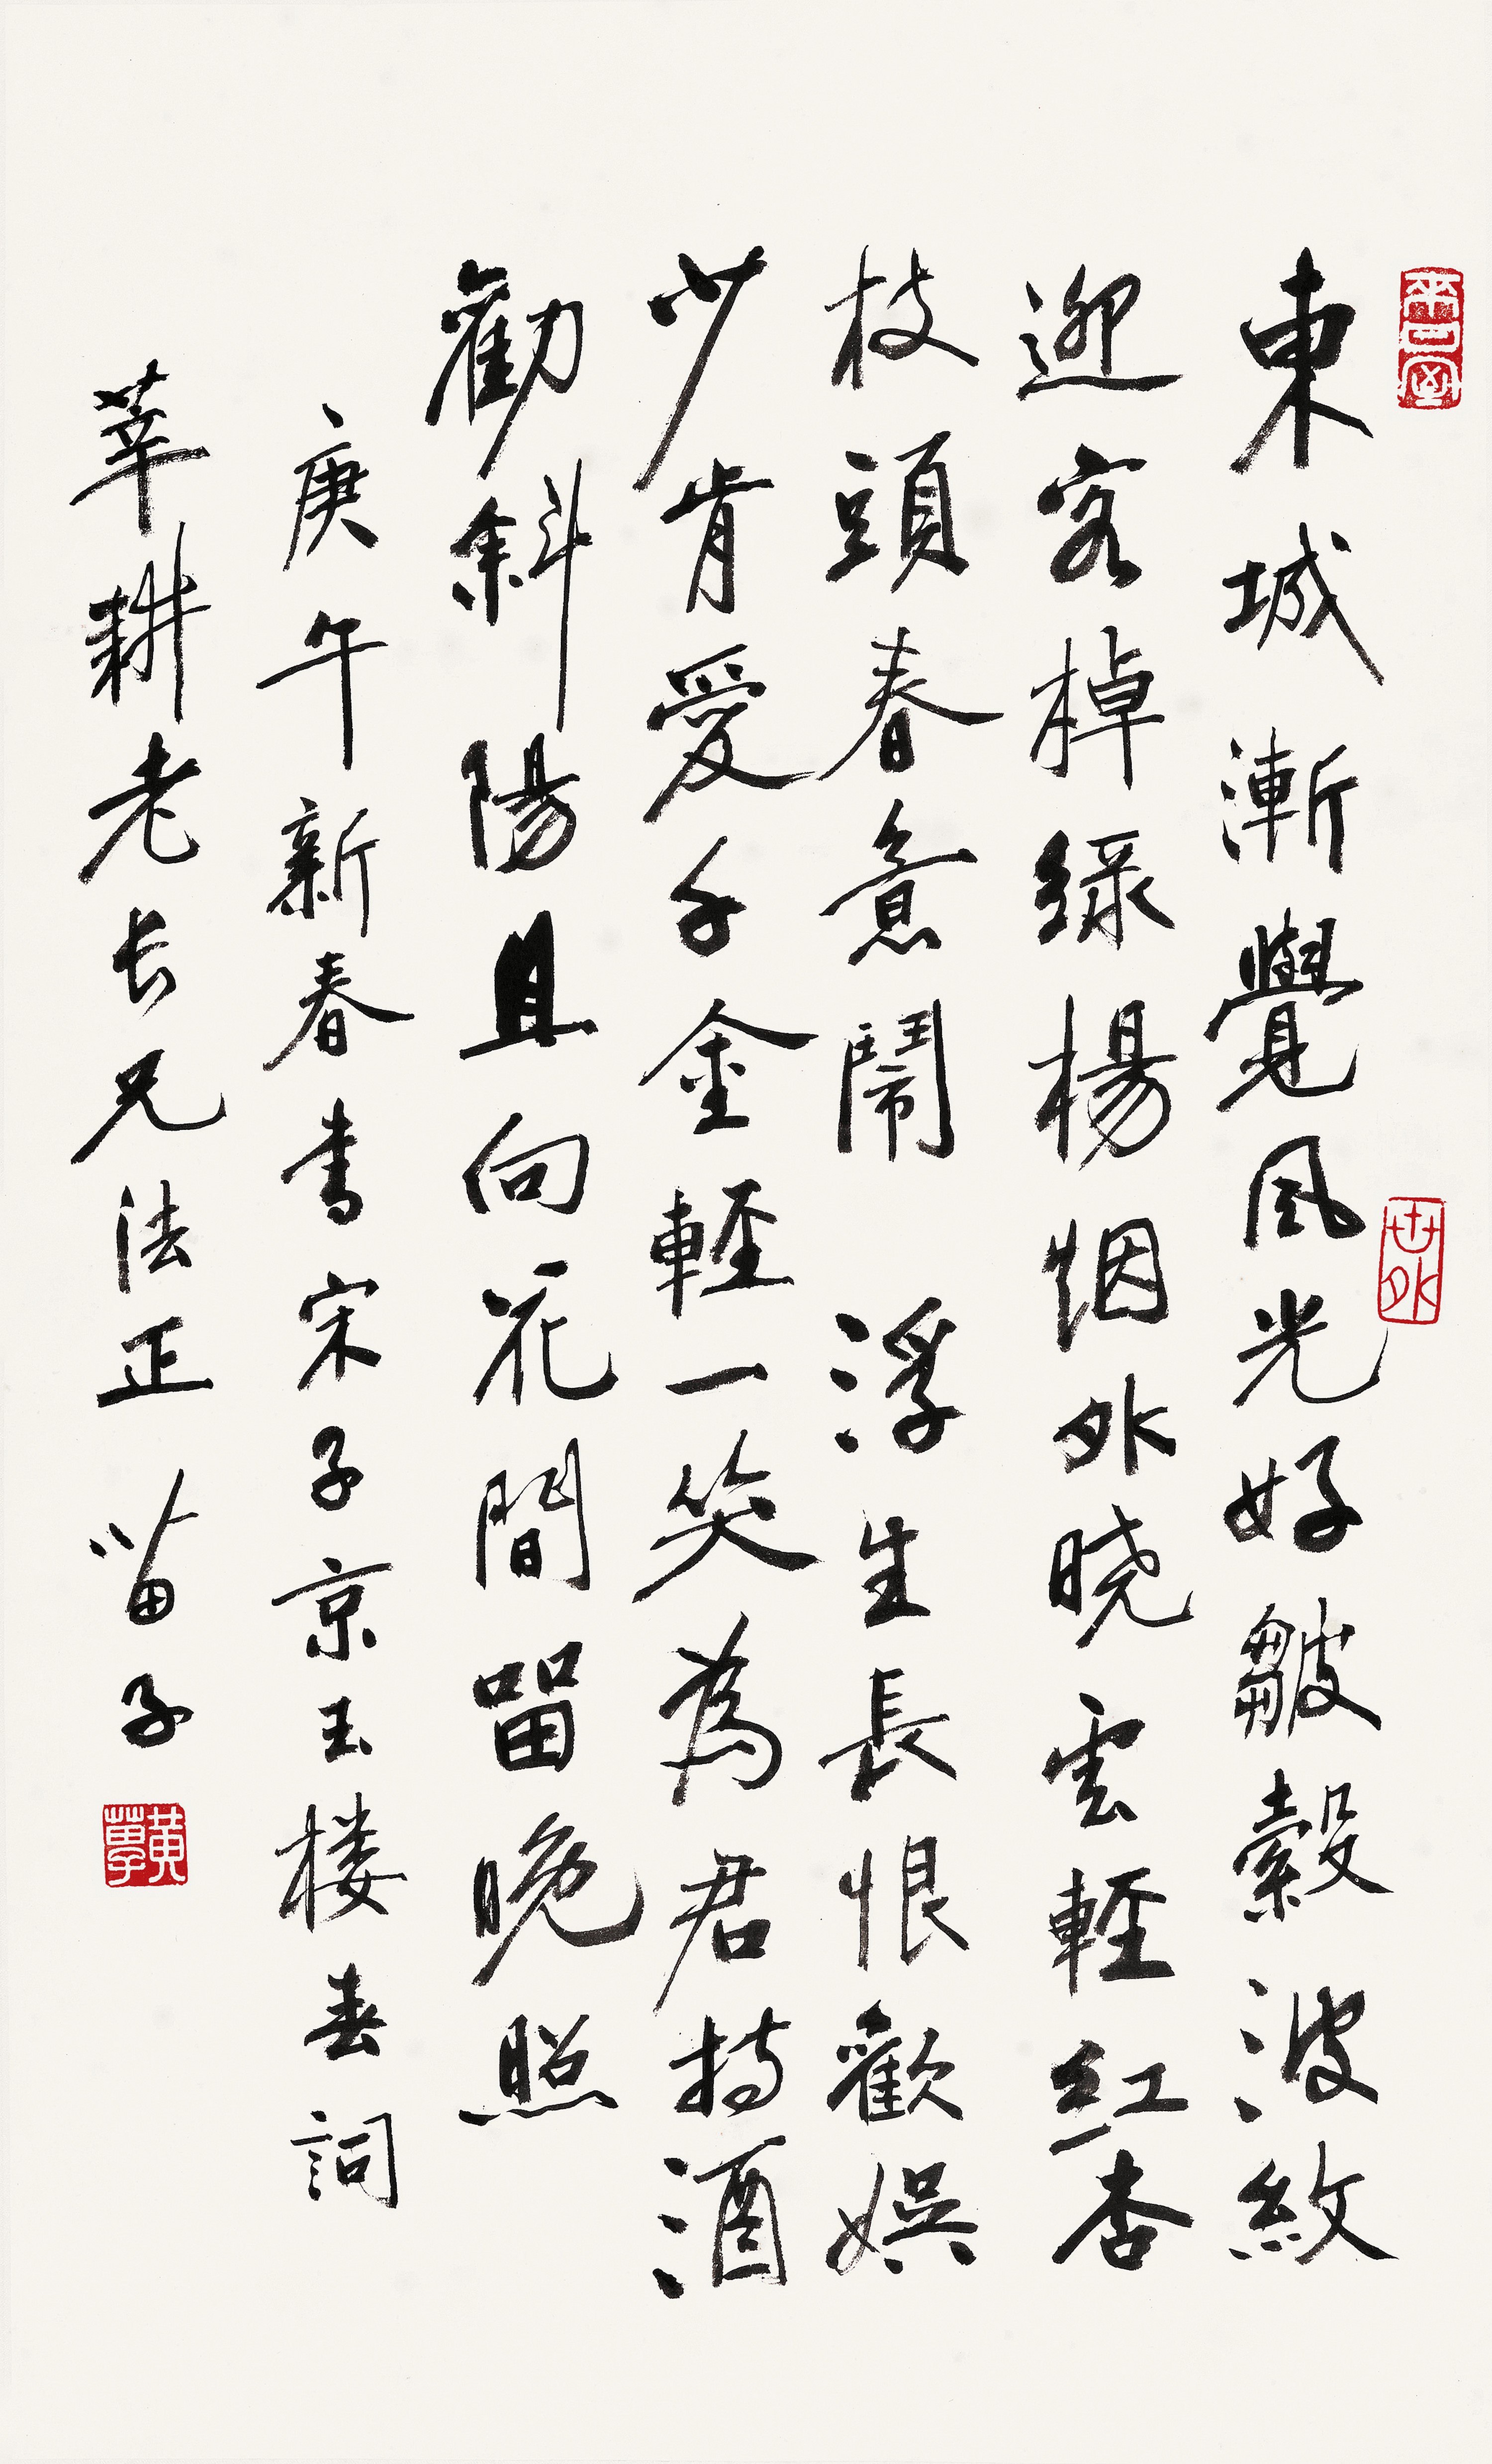 東城漸覺風光好皺縠波紋
迎客棹綠楊烟外晓雲輕紅杏
枝頭春意鬧 浮生長恨歡娛
少肯愛千金輕一笑為君持酒
勸斜陽且向花間留晚照
庚午新春書宋子京玉楼春詞
莘耕老长兄法正 苗子
世外
黃苗子